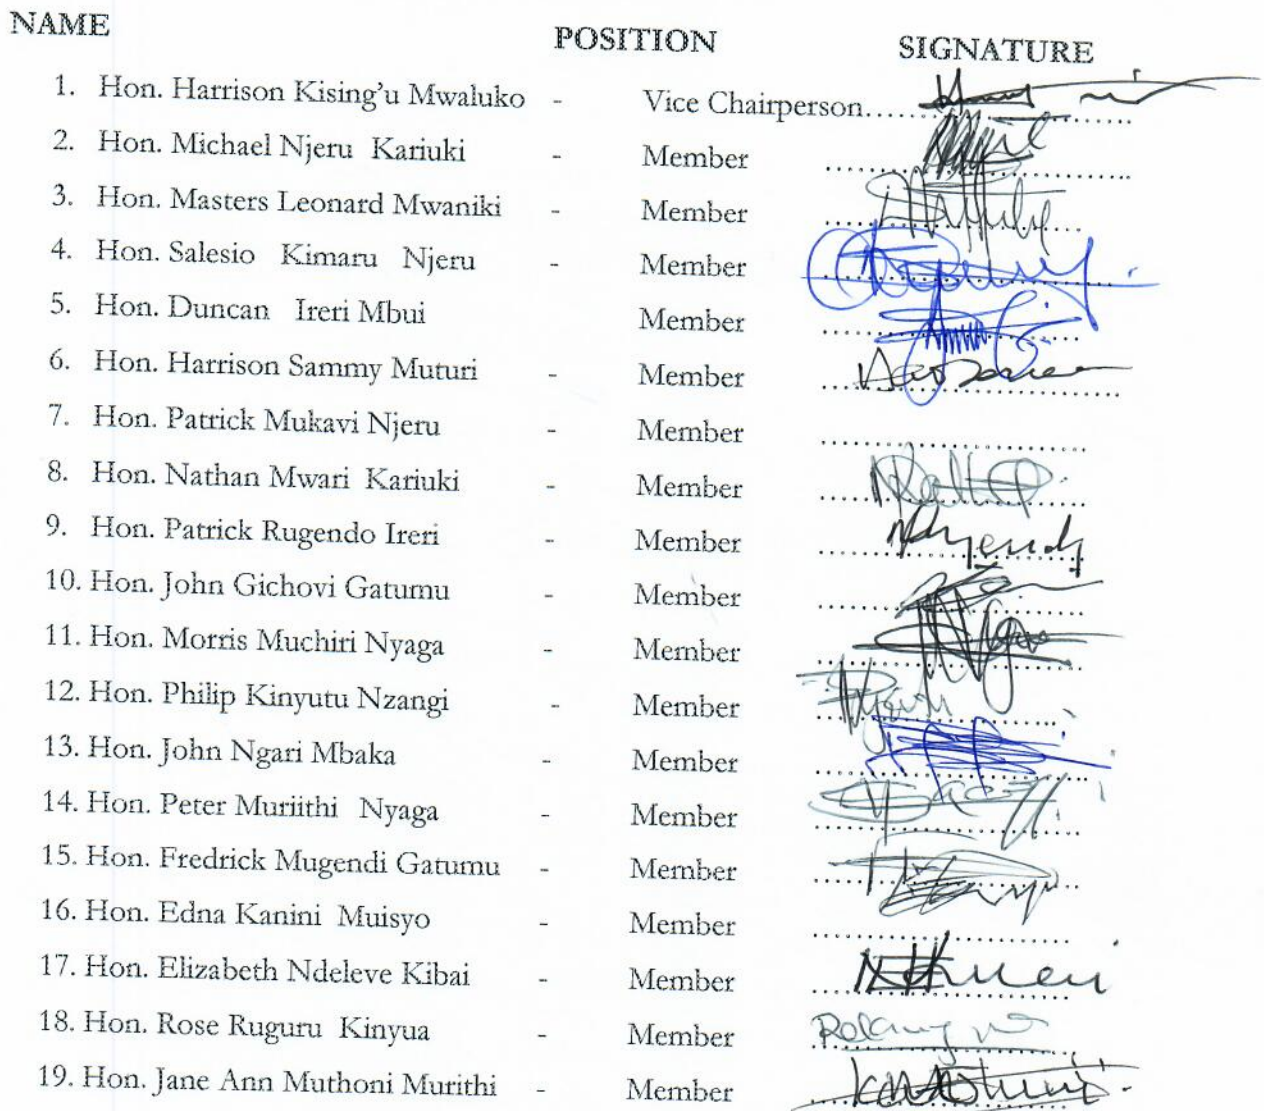 NAME POSITION SIGNATURE
1. Hon. Harrison Kising'u Mwaluko - Vice Chairperson
2. Hon. Michael Njeru Kariuki - Member
3. Hon. Masters Leonard Mwaniki - Member
4. Hon. Salesio Kimaru Njeru - Member
5. Hon. Duncan Ireri Mbui Member
6. Hon. Harrison Sammy Muturi - Member
7. Hon. Patrick Mukavi Njeru - Member
8. Hon. Nathan Mwari Kariuki - Member
9. Hon. Patrick Rugendo Ireri - Member
10. Hon. John Gichovi Gatumu - Member
11. Hon. Morris Muchiri Nyaga - Member
12. Hon. Philip Kinyutu Nzangi - Member
13. Hon. John Ngari Mbaka - Member
14. Hon. Peter Muriithi Nyaga - Member
15. Hon. Fredrick Mugendi Gatumu - Member
16. Hon. Edna Kanini Muisyo - Member
17. Hon. Elizabeth Ndeleve Kibai - Member
18. Hon. Rose Ruguru Kinyua - Member
19. Hon. Jane Ann Muthoni Murithi - Member